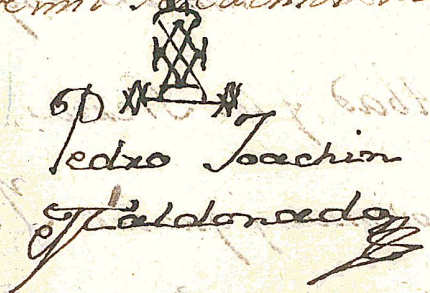 Pedro Joachin
Maldonado